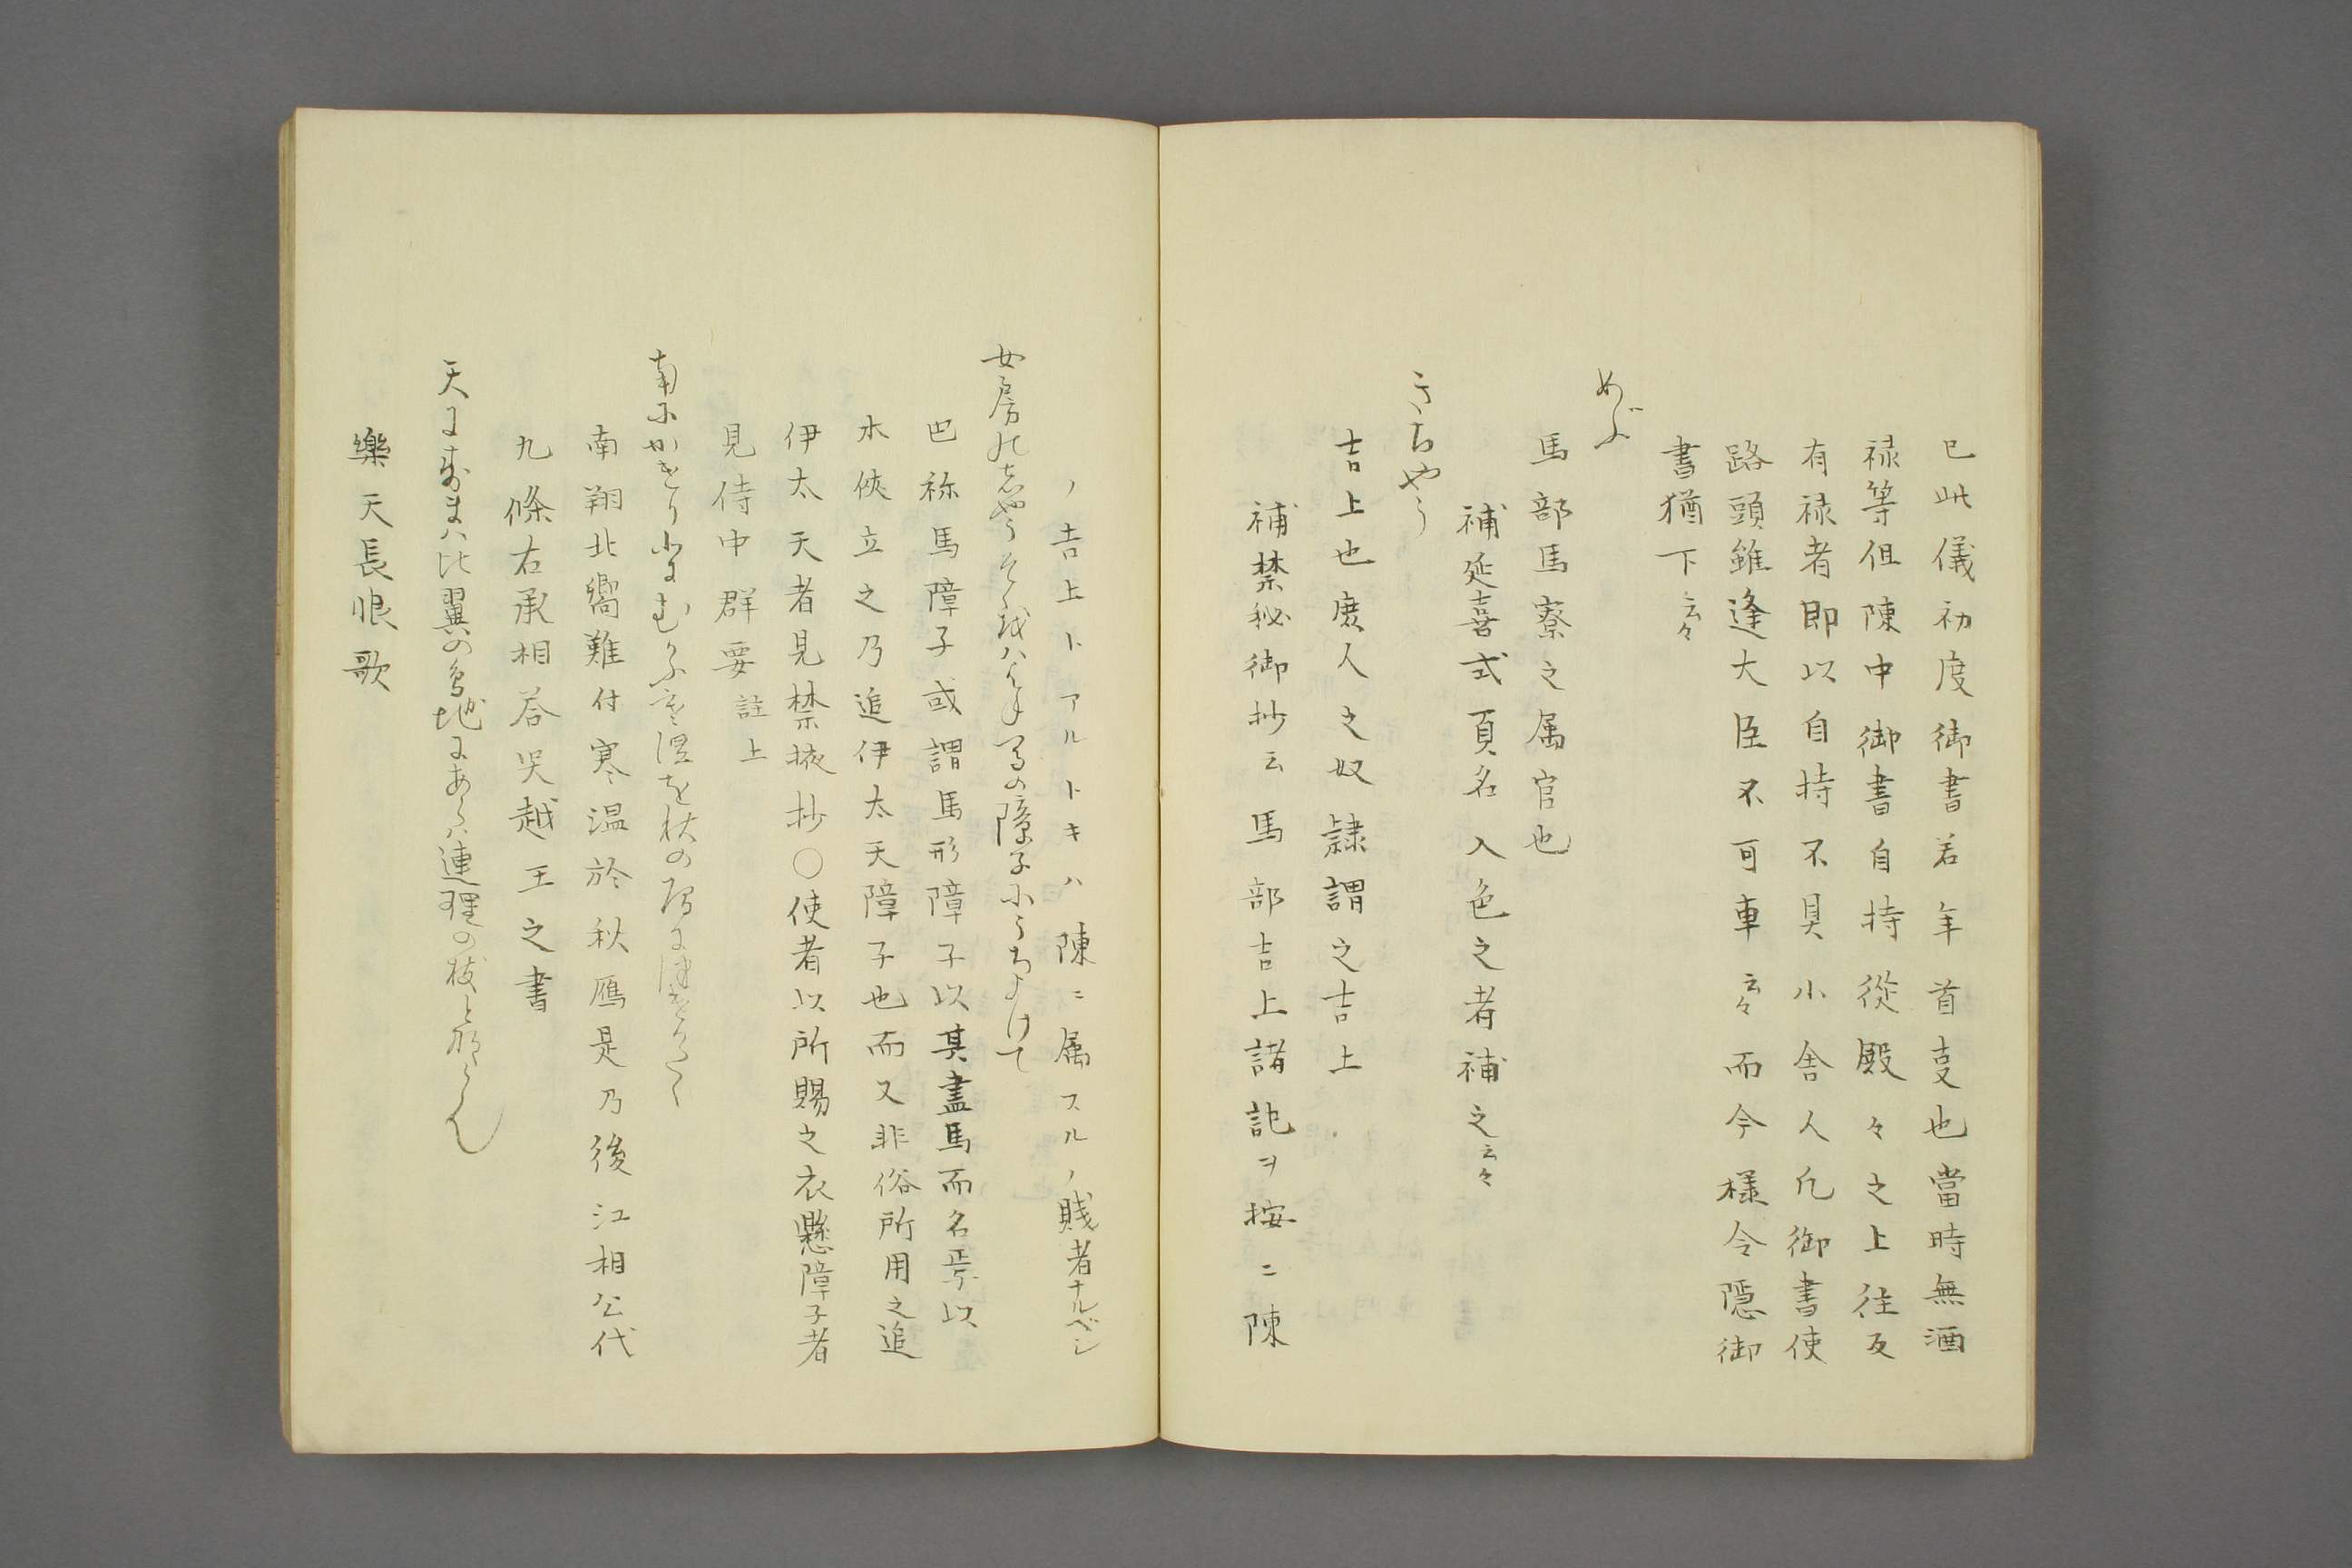 已此儀初度御書若年首叓也當時無酒
禄等但陳中御書自持從殿々之上往反
有禄者即以自持不具小舎人凢御書使
路頭雖逢大臣不可車云々而今様令隠御
書猶下云々
めぶ
馬部馬寮之属官也
補延喜式頁名入色之者補之云々
きちやう
吉上也庶人之奴隷謂之吉上
補禁秘御抄云馬部吉上諸記ヲ按ニ陳
ノ吉上トアルトキハ陳ニ属スルノ賤者ナルベシ
女房のさやうそく或ハよき馬の障子にうちかけて
巴祢馬障子或謂馬形障子以其畫馬而名焉以
木俠立之乃追伊太天障子也而又非俗所用之追
伊太天者見禁掖抄○使者以所賜之衣懸障子者
見侍中群要註上
南にかけり北にむかふ寒温を秋の鴈に
南翔北嚮難付寒温於秋鴈是乃後江相公代
九條右丞相荅吴越王之書
天にすまハ比翼の鳥地にあらハ連理の枝とならん
樂天長恨歌